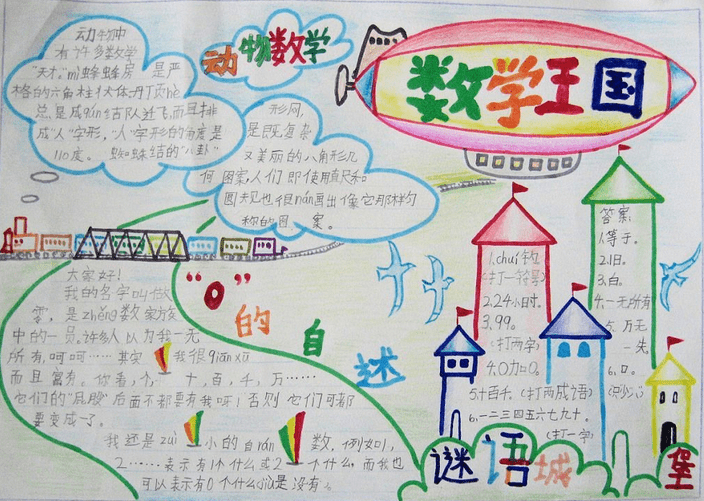 数学王国
动物数学
动物中
有许多数学
"天才"mì蜂蜂房 是严
格的六角柱状体丹顶hè
总是成qún结队迁飞,而且排
成"人"字形,"人"字形的角度是
110度。 蜘蛛结的"八卦"
形网,
是既复杂
又美丽的八角形几
何 图案,人们 即使用直尺和
圆规也很nán画出像它那样匀
称的图 案。
"0"的自述
大家好!
我的名字叫做
零,是zhěng数家族
中的一员。许多人以为我一无
所有,呵呵…… 其实 我很qiān xū
而且富有。你看,个, 十,百,千,万……
它们的"屁股"后面不都要有我呀!否则 它们可都
要变成一了。
我还是zuì 小的自rán 数,例如1,
2……表示有1个什么或2 个什么,而我也
可以表示有0个什么jiù是 没有。
1.chuí钓
(打一符号)
2.24小时。
3.99。
(打两字)
4.0加0。
5.十百千。(打两成语)
6.一二三四五六七九十。
(打一字)
答案:
1.等于。
2.旧。
3.白。
4.一无所有
5. 万无
一失
6.口。
(只少八)
谜语城堡